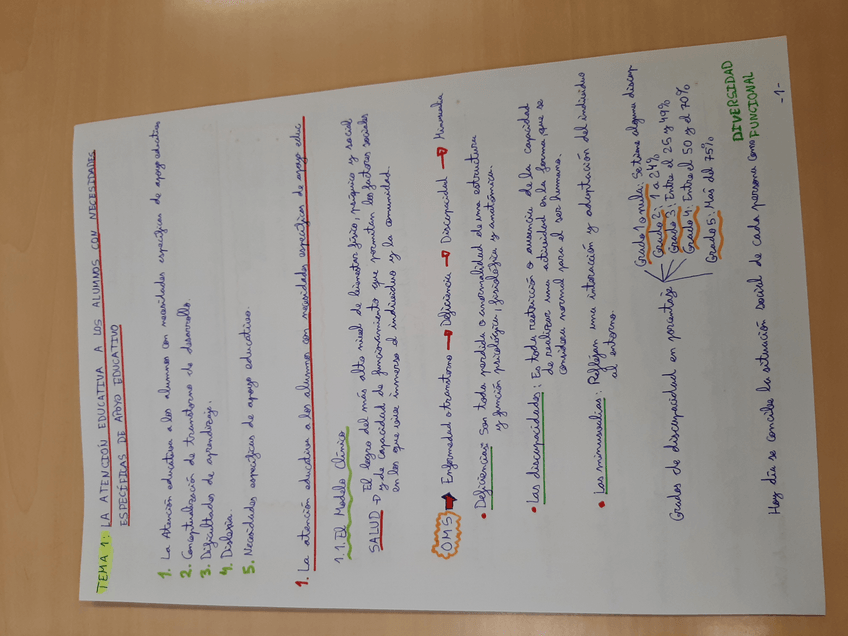 TEMA 1: LA ATENCIÓN EDUCATIVA A LOS ALUMNOS CON NECESIDADES
ESPECÍFICAS DE APOYO EDUCATIVO
1. La Atención educativa a los alumnos con necesidades específicas de apoyo educativo
2. Conceptualización de transtorno de desarrollo.
3. Dificultades de aprendizaje.
4. Dislexia.
5. Necesidades específicas de apoyo educativo.
1. La atención educativa a los alumnos con necesidades específicas de apoyo educ.
1.1. El Modelo Clínico
SALUD → El logro del más alto nivel de bienestar físico, psíquico y social
y de capacidad de funcionamiento que permitan los factores sociales
en los que vive inmerso el individuo y la comunidad.
OMS → Enfermedad o transtorno → Deficiencia → Discapacidad → Minusvalía
• Deficiencias: Son toda perdida o anormalidad de una estructura
y función psicológica, fisiológica y anatómica.
• Las discapacidades: Es toda restricción o ausencia de la capacidad
de realizar una actividad en la forma que se
considera normal para el ser humano.
• Las minusvalías: Reflejan una interacción y adaptación del individuo
al entorno.
Grados de discapacidad en porcentaje
Grado 1 o nula: Se tiene alguna discap
Grado 2: 1 a 24%
Grado 3: Entre el 25 y 49%
Grado 4: Entre el 50 y el 70%
Grado 5: Más del 75%
Hoy día se concibe la situación social de cada persona como DIVERSIDAD
FUNCIONAL
-1-